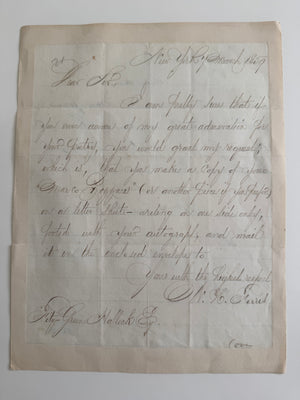 New York, 9 March 1859
Dear Sir,
I am pretty sure that if
you were aware of my great admiration for
your Poetry, you would grant my request,
which is, that you make a copy of your
"Marco Bozzaris" (or another piece if you prefer)
on a letter sheet— writing on one side only,
with your autograph, and mail
it in the enclosed envelope to
Yours with the respect
Fitz-Green Halleck Esq.
(over